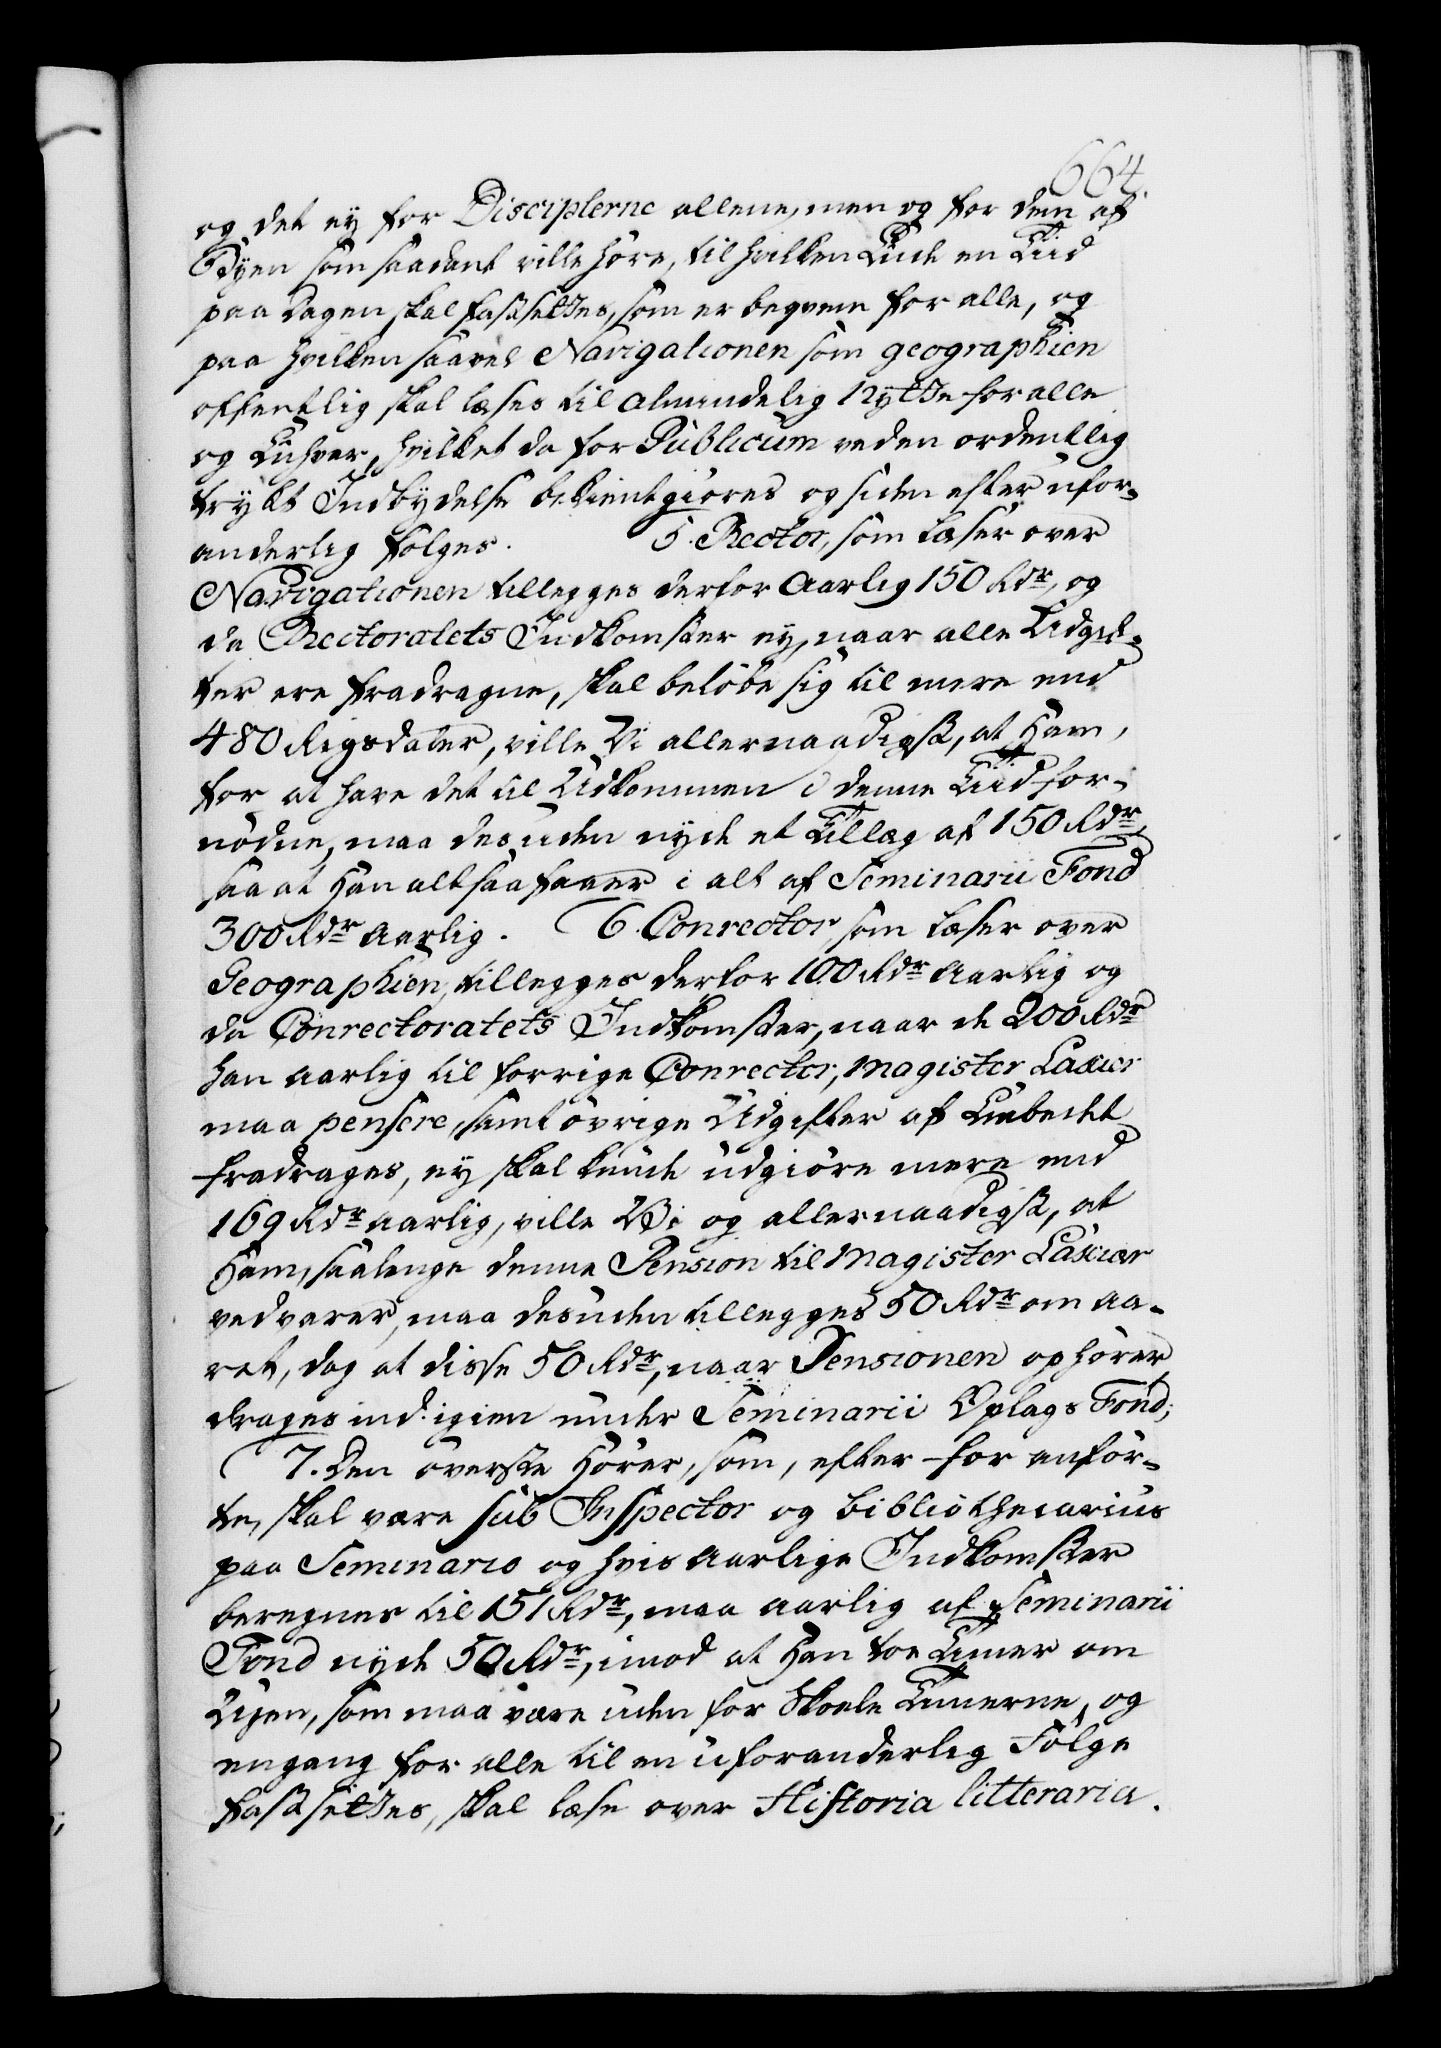 664.
og det ey for Disciplerne allene, men og for dem af
Byen som saadant ville høre, til hvilken Ende en Tiid
paa Dagen skal fastsættes, som er beqvem for alle, og
paa hvilken saavel Navigationen som geographien
offentlig skal læses til almindelig Nytte for alle
og Enhver, hvilket da for Publicum ved en ordentlig
trykt Indbydelse bekientgiøres og siden efter ufor-
anderlig følges. 5. Rector, som læser over
Navigationen tillegges derfor Aarlig 150 Rdr, og
da Rectoratets Indkomster ey, naar alle Udgif-
ter ere fradragne, skal beløbe sig til mere end
480 Rigsdaler, ville Vi allernaadigst, at Ham,
for at have det til Udkommen i denne Tiid for-
nødne, maa desuden nyde et Tillæg af 150 Rdr,
saa at Han altsaa faaer i alt af Seminarii Fond
300 Rdr Aarlig. 6. Conrector, som læser over
Geographien, tillegges derfor 100 Rdr Aarlig og
da Conrectoratets Indkomster, naar de 200 Rdr
han aarlig til forrige Conrector, Magister
maa pensere, samt øvrige Udgifter af Embedet
fradrages, ey skal kunde udgiøre mere end
169 Rdr aarlig, ville Vi og allernaadigst, at
Ham, saalenge denne Pension til Magister
vedvarer, maa desuden tillegges 50 Rdr om Aa-
ret, dog at disse 50 Rdr, naar Pensionen ophører,
drages ind igien under Seminarii Oplags Fond;
7. Den øverste Hører, som, efter for anfør-
te, skal være sub Inspector og bibliothecarius
paa Seminario og hvis Aarlige Indkomster
beregnes til 151 Rdr, maa aarlig af Seminarii
Fond nyde 50 Rdr, imod at Han toe Timer om
Ugen, som maa være uden for Skoele Timerne, og
engang for alle til en uforanderlig Følge
fastsættes, skal læse over Historia litteraria.